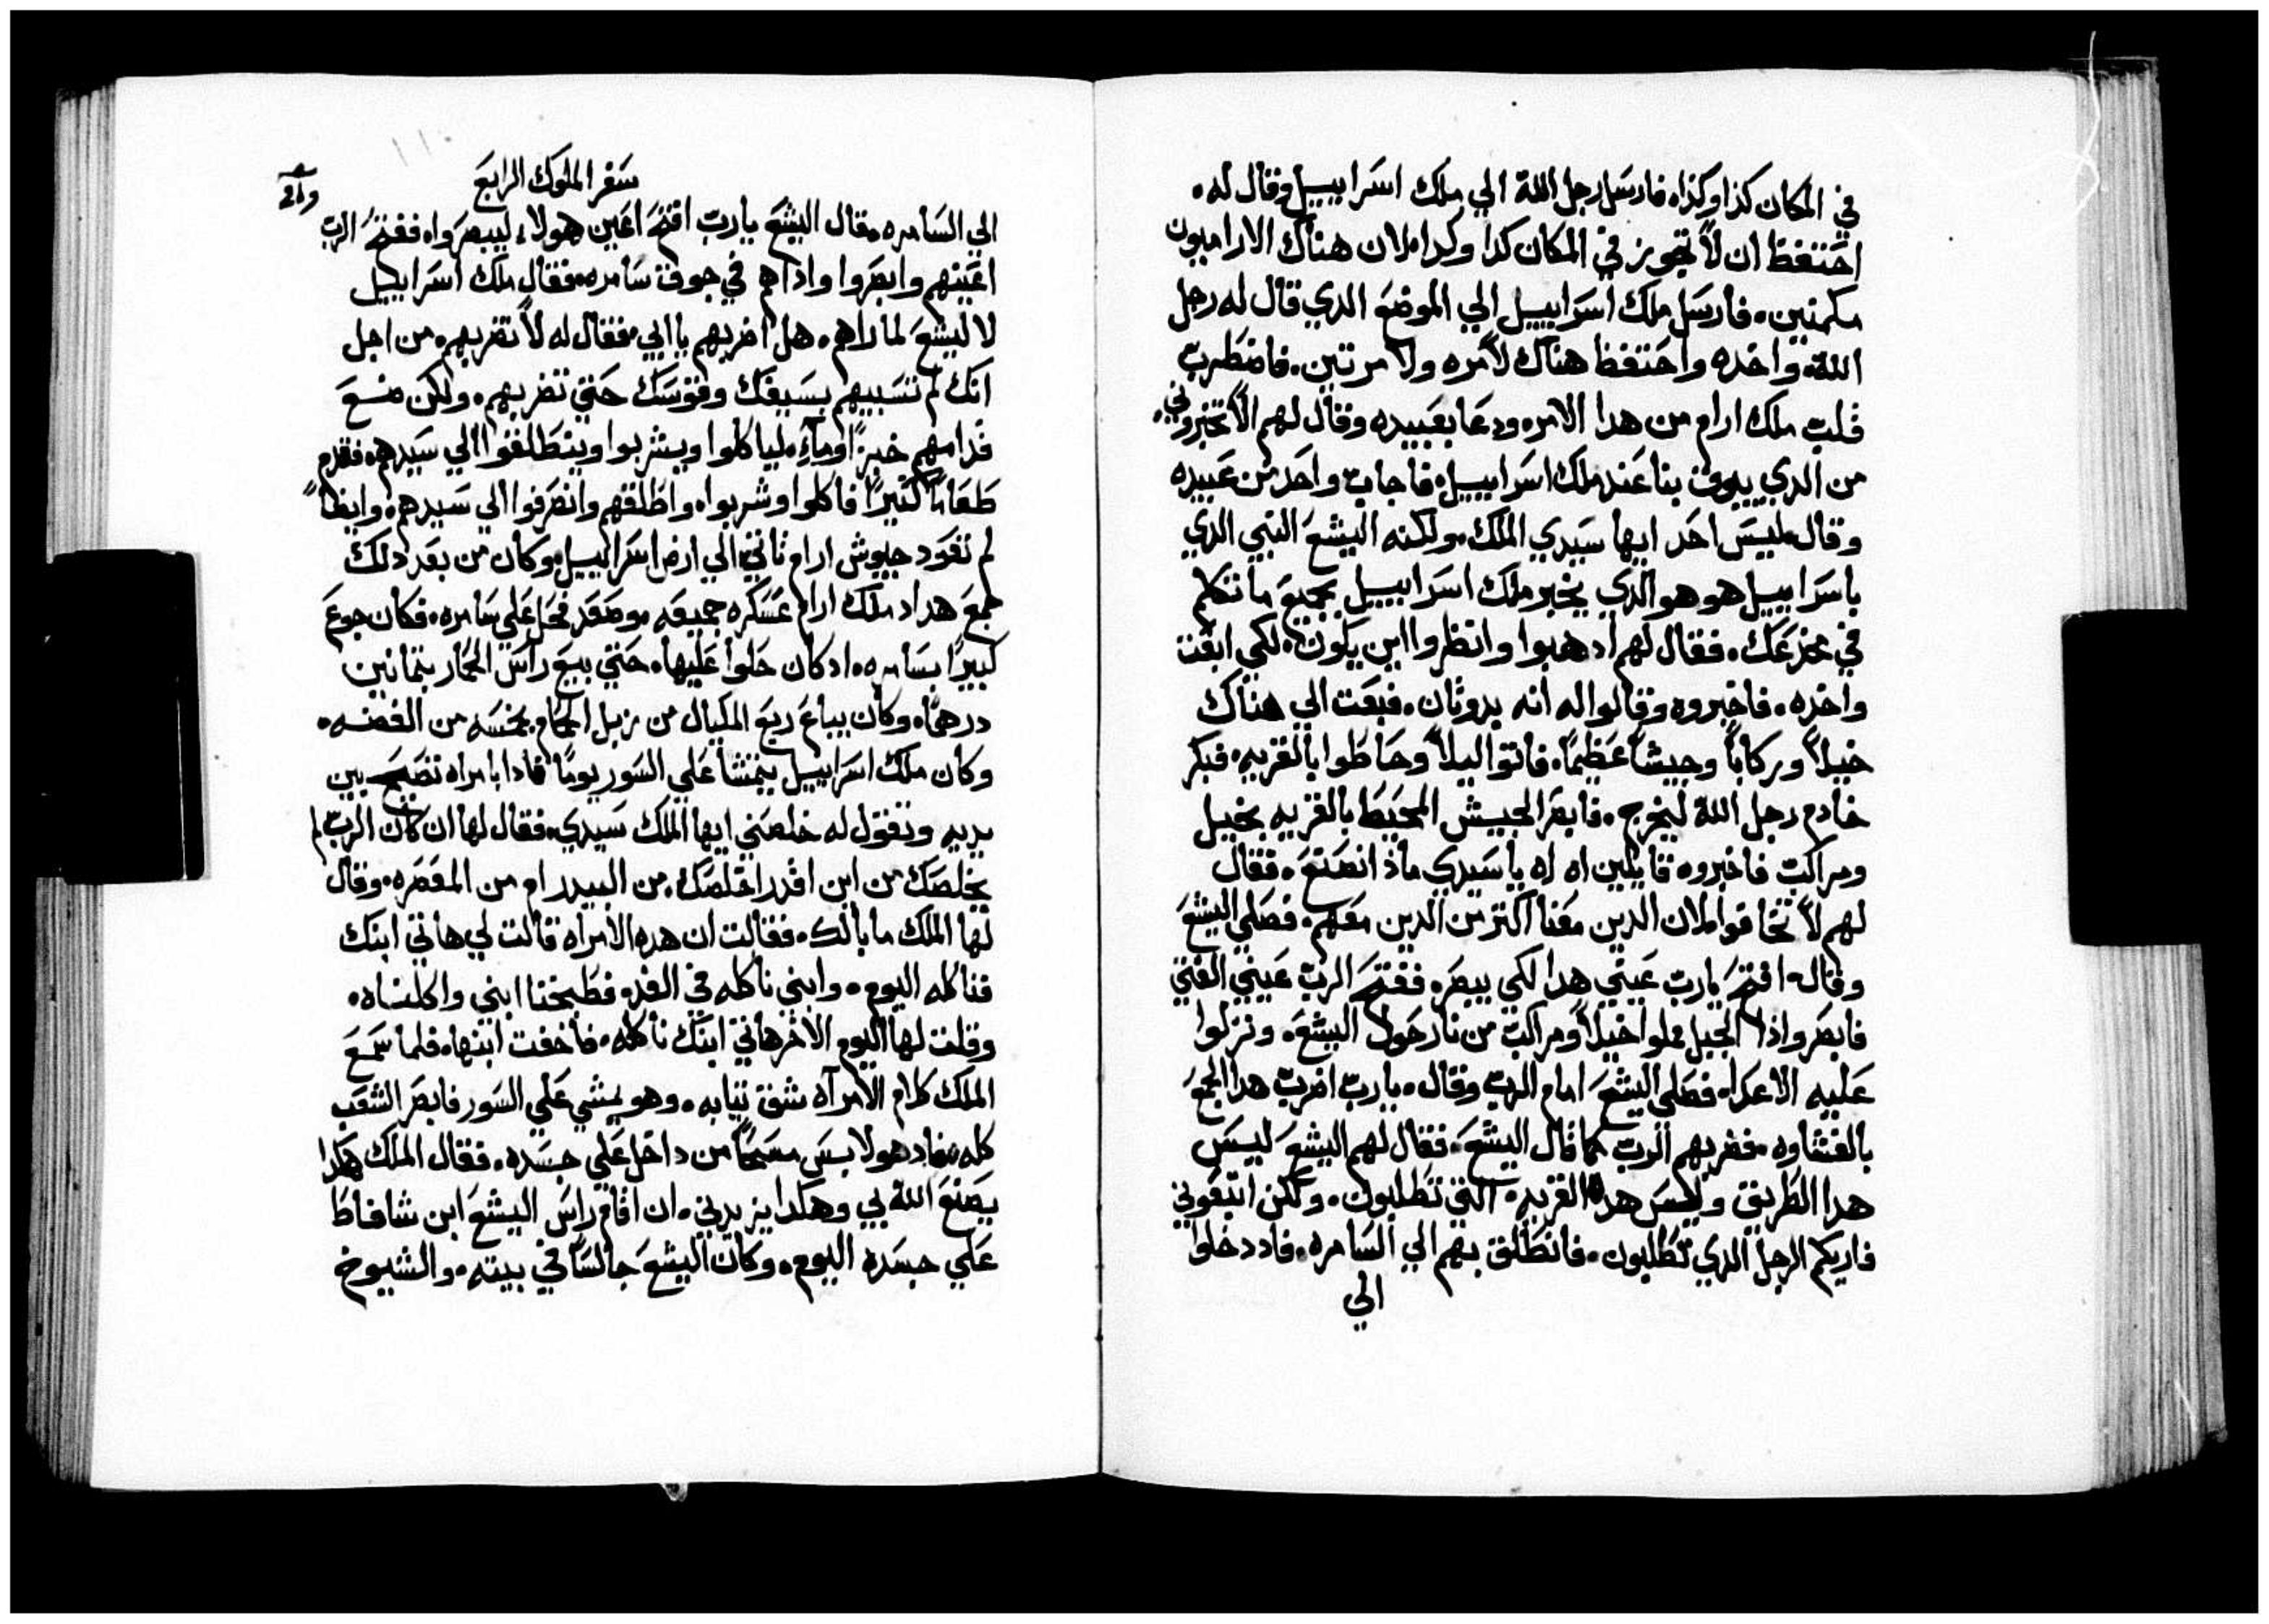 في المكان كذا وكذا، فارسل رجل الله الي ملك اسراييل وقال له،
احتفظ ان لا تجوز في المكان كدا وكدا، لان هناك الاراميون
مكمنين، فارسل ملك اسراييل الي الموضع الدي قال له رجل
الله، واخده واحتفظ هناك لامره ولا مرتين، فاضطرب
قلب ملك ارام من هدا الامر، ودعا بعبيده وقال لهم الا تخبروني،
من الدي بنا عند ملك اسراييل، فاجاب واحد من عبيده
وقال، ليس احد ايها سيدي الملك، ولكنه اليشع النبي الدي
باسراييل هو هو الدي يخبر ملك اسراييل بجميع ما تتكلم
في مخدعك، فقال لهم ادهبوا وانظروا اين يكون، لكي ابعت
واخده، فاخبروه وقالوا له انه بدوتان، فبعت الي هناك
خيلاً وركاباً وجيشاً عظيماً، فاتوا ليلاً وحاطوا بالقريه، فبكر
خادم رجل الله ليخرج، فابصر الجيش المحيط بالقريه بخيل
ومراكب فاخبروه قايلين اه اه يا سيدي ماذا نصنع، فقال
لهم لا تخافوا، لان الدين معنا اكتر من الدين معهم، فصلي اليشع
وقال، افتح يارب عيني هدا لكي يبصر، ففتح الرب عيني الفتي
فابصر واذا الجبل مملوا خيلاً ومراكب من نار حول اليشع، ونزلوا
عليه الاعدا، فصلي اليشع امام الرب وقال، يارب اضرب هدا الجمع
بالغشاوه، فضربهم الرب كما قال اليشع، فقال لهم اليشع ليس
هدا الطريق وليس هده القريه، التي تطلبون، ولكن اتبعوني
فاريكم الرجل الدي تطلبون، فانطلق بهم الي السامره، فاد دخلوا
الي
سفر الملوك الرابع
الي السامره، قال اليشع يارب افتح اعين هولاء ليبصروا، ففتح الرب
اعينهم وابصروا واذا هم في جوف سامره، فقال ملك اسراييل
لاليشع لما راهم، هل اضربهم يا ابي، فقال له لا تضربهم، من اجل
انك لم تسبيهم بسيفك وقوسك حتي تضربهم، ولكن ضع
قدامهم خبزاً وماءً، لياكلوا ويشربوا وينطلقوا الي سيدهم، فقدم
طعاماً كتيراً فاكلوا وشربوا، واطلقهم وانصرفوا الي سيدهم، وايضاً
لم تعود جيوش ارام تاتي الي ارض اسراييل، وكان من بعد دلك
جمع هداد ملك ارام عسكره جميعه، وصعد فحل علي سامره، فكان جوع
كبيراً بسامره، اد كان حلوا عليها، حتي بيع راس الحمار بتمانين
درهماً، وكان يباع ربع المكيال من زبل الحمام بخمسه من الفضه،
وكان ملك اسراييل يتمشا علي السور يوماً، فادا بامراه تصيح بين
يديه وتقول له خلصني ايها الملك سيدي، فقال لها ان كان الرب لم
يخلصك من اين اقدر اخلصك، من البيدر ام من المعصره، وقال
لها الملك ما بالك، فقالت ان هده الامراه قالت لي هاتي ابنك
فناكله اليوم، وابني ناكله في الغد، فطبخنا ابني واكلناه،
وقلت لها اليوم الاخر هاتي ابنك ناكله، فاخفت ابنها، فلما سمع
الملك كلام الامراه شق تيابه، وهو يمشي علي السور فابصر الشعب
كله، فاد هو لابس مسحاً من داخل علي جسده، فقال الملك هكدا
يصنع الله بي وهكدا يزيدني، ان اقام راس اليشع ابن شافاط
علي جسده اليوم، وكان اليشع جالساً في بيته، والشيوخ